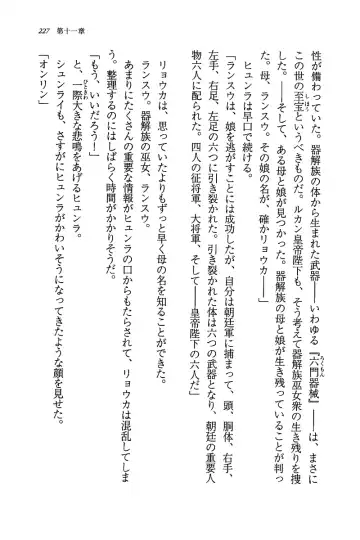 227 第十一章
性が備わっていた。器解族の体から生まれた武器――いわゆる『六門器械』――は、まさに
この世の至宝というべきものだ。ルカン皇帝陛下も、そう考えて器解族巫女衆の生き残りを捜
した。――そして、ある母と娘が見つかった。器解族の母と娘が生き残っていることが判っ
た。母、ランスウ。その娘の名が、確かリョウカ――」
ヒュンラは早口で続ける。
「ランスウは、娘を逃がすことには成功したが、自分は朝廷軍に捕まって、頭、胴体、右手、
左手、右足、左足の六つに引き裂かれた。引き裂かれた体は六つの武器となり、朝廷の重要人
物六人に配られた。四人の征将軍、大将軍、そして――皇帝陛下の六人だ」
リョウカは、思っていたよりもずっと早く母の名を知ることができた。
ランスウ。器解族の巫女、ランスウ。
あまりにたくさんの重要な情報がヒュンラの口からもたらされて、リョウカは混乱してしま
う。整理するのにはしばらく時間がかかりそうだ。
「もう、いいだろう!」
と、一際大きな悲鳴をあげるヒュンラ。
シュンライも、さすがにヒュンラがかわいそうになってきたような顔を見せた。
「オンリン」